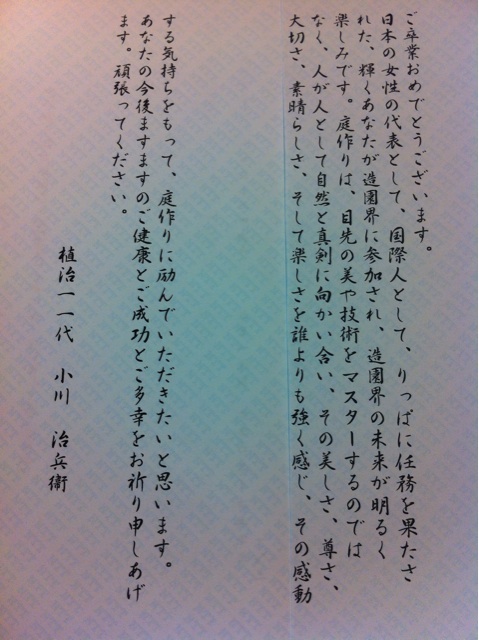 ご卒業おめでとうございます。
日本の女性の代表として、国際人として、りっぱに任務を果たさ
れた、輝くあなたが造園界に参加され、造園界の未来が明るく
楽しみです。庭作りは、目先の美や技術をマスターするのでは
なく、人が人として自然と真剣に向かい合い、その美しさ、尊さ、
大切さ、素晴らしさ、そして楽しさを誰よりも強く感じ、その感動
する気持ちをもって、庭作りに励んでいただきたいと思います。
あなたの今後ますますのご健康とご成功とご多幸をお祈り申しあげ
ます。頑張ってください。
植治一一代　小川　治兵衛